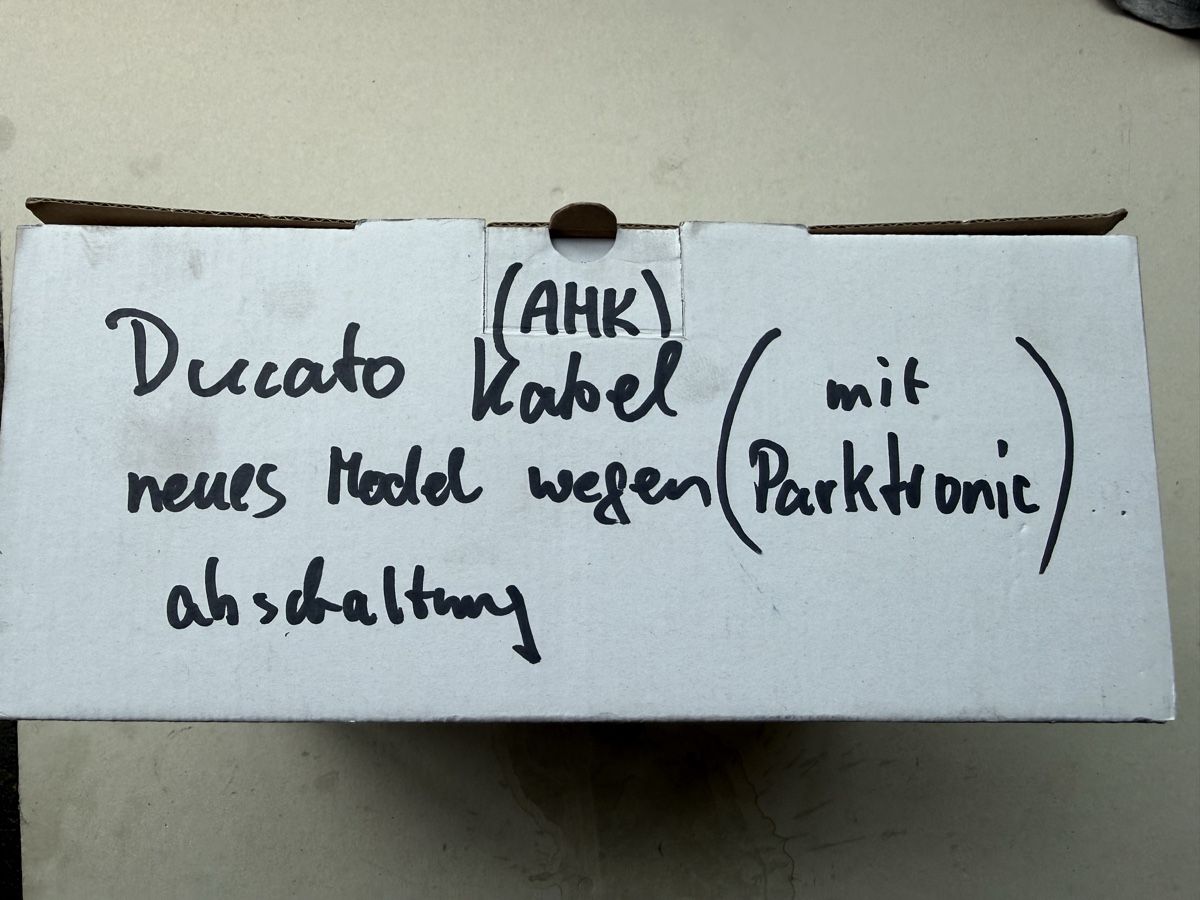 (AHK)
Ducato Kabel (mit
neues Model wegen Parktronic)
abschaltung